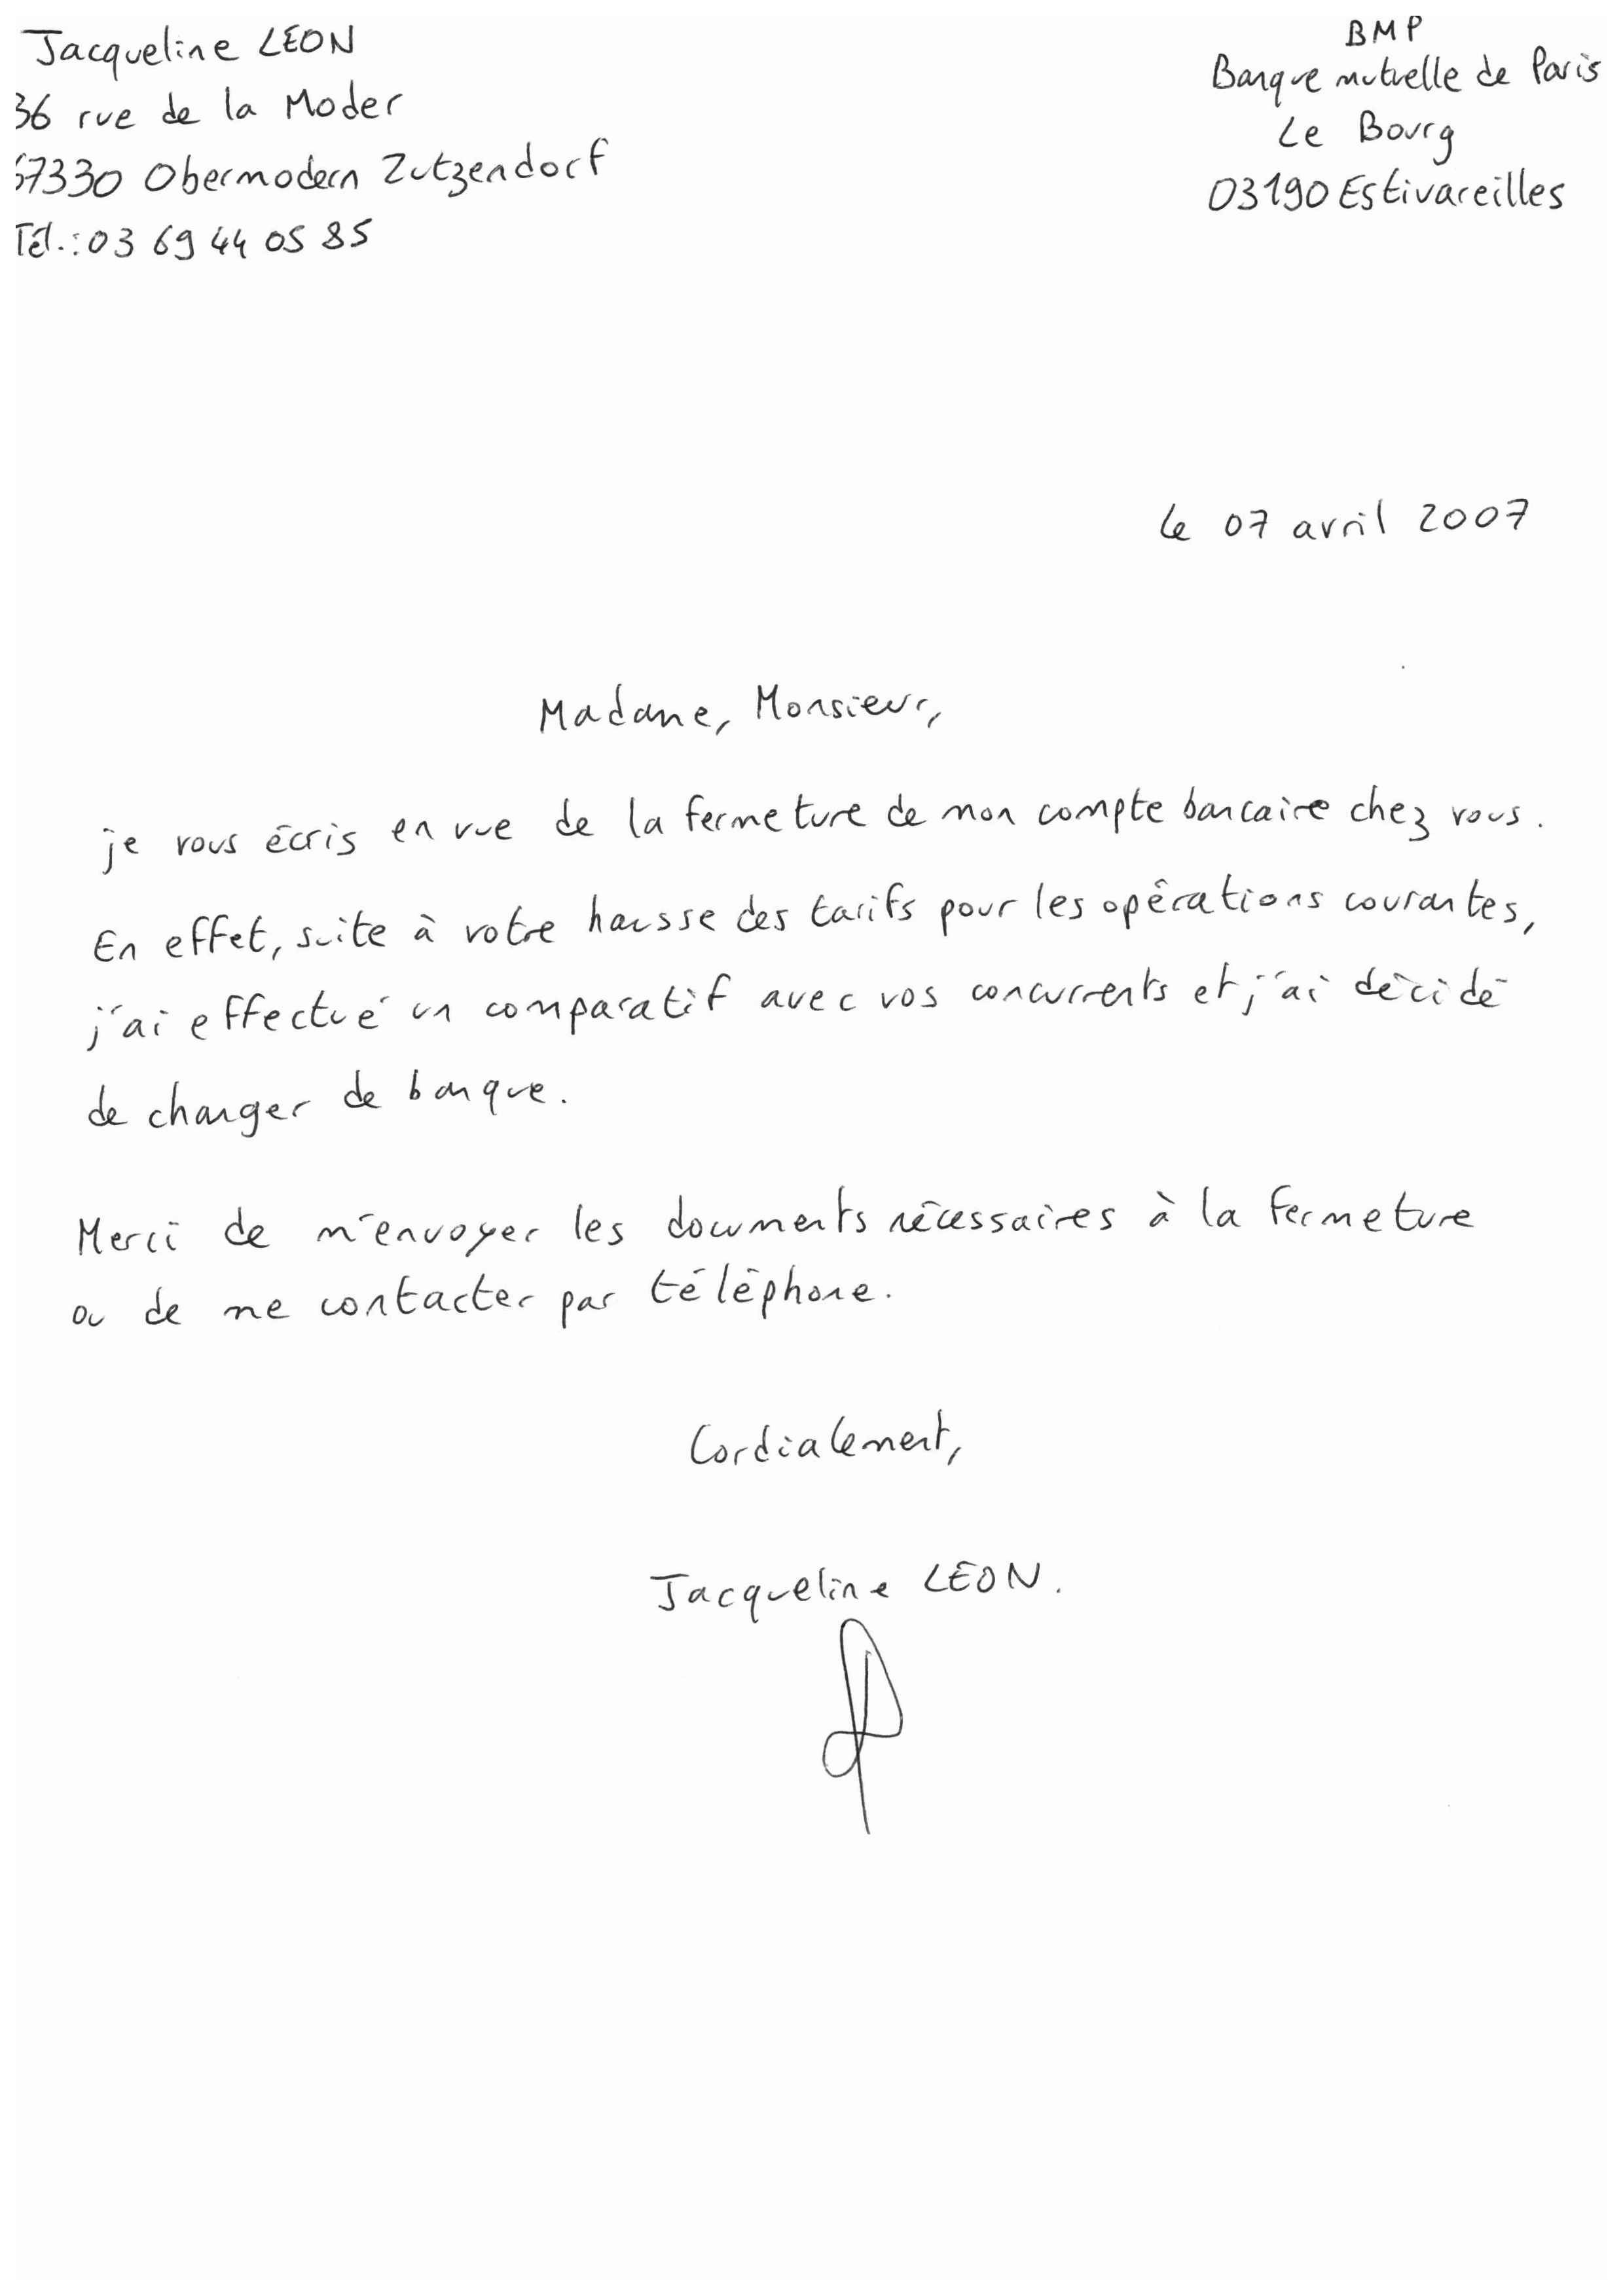 Jacqueline LEON
36 rue de la Moder
67330 Obermodern Zutzendorf
Tél.: 03 69 44 05 85
BMP
Banque mutuelle de Paris
Le Bourg
03190 Estivareilles
le 07 avril 2007
Madame, Monsieur,
je vous écris en vue de la fermeture de mon compte bancaire chez vous.
En effet, suite à votre hausse des tarifs pour les opérations courantes,
j'ai effectué un comparatif avec vos concurrents et j'ai décidé
de changer de banque.
Merci de m'envoyer les documents nécessaires à la fermeture
ou de me contacter par téléphone.
Cordialement,
Jacqueline LÉON.